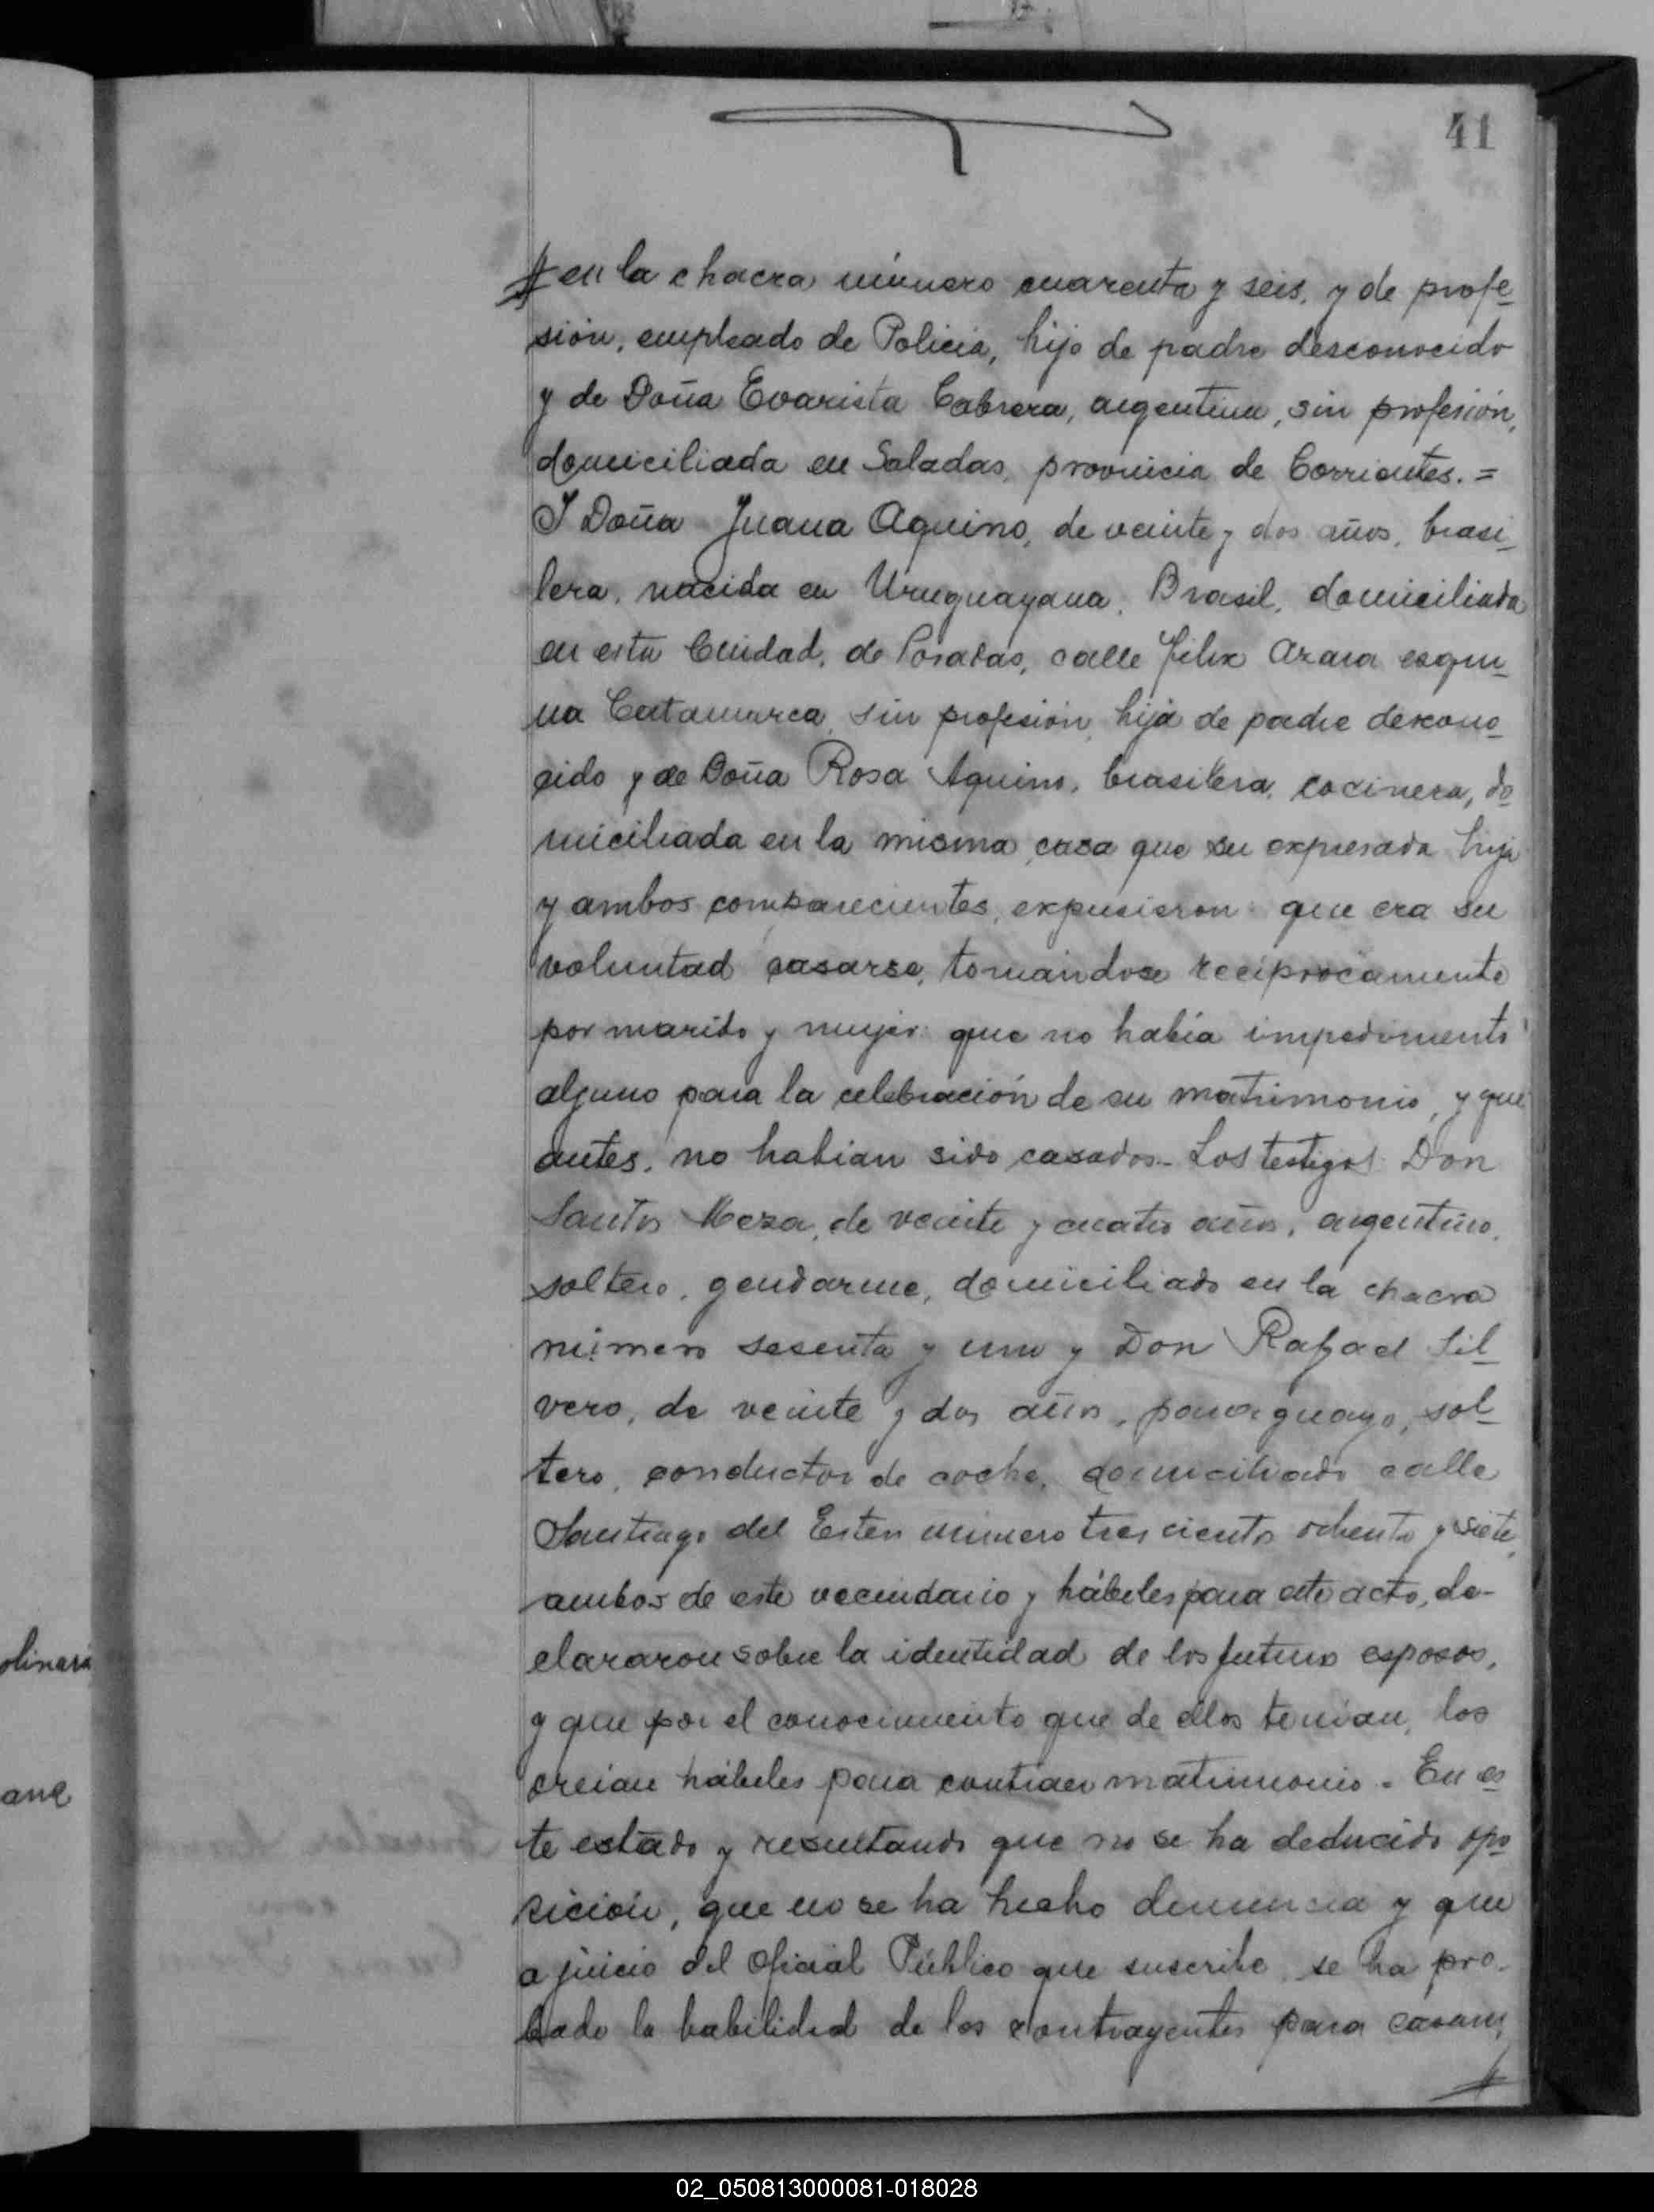 41
en la chacra número cuarenta y seis, y de profe-
sión, empleado de Policía, hijo de padre desconocido
y de Doña Evarista Cabrera, argentina, sin profesión,
domiciliada en Saladas, provincia de Corrientes. =
Y Doña Juana Aquino, de veinte y dos años, brasi-
lera, nacida en Uruguayana, Brasil, domiciliada
en esta Ciudad, de Posadas, calle Félix Azara esqui-
na Catamarca, sin profesión, hija de padre descono-
cido y de Doña Rosa Aquino, brasilera, cocinera, do-
miciliada en la misma casa que su expresada hija
y ambos comparecientes, expusieron: que era su
voluntad casarse, tomándose recíprocamente
por marido y mujer: que no había impedimento
alguno para la celebración de su matrimonio, y que
antes, no habían sido casados.- Los testigos Don
Santos Meza, de veinte y cuatro años, argentino,
soltero, gendarme, domiciliado en la chacra
número sesenta y uno y Don Rafael Sil-
vero, de veinte y dos años, paraguayo, sol-
tero, conductor de coche, domiciliado calle
Santiago del Estero número trescientos ochenta y siete,
ambos de este vecindario y hábiles para este acto, de-
clararon sobre la identidad de los futuros esposos,
y que por el conocimiento que de ellos tenían, los
creían hábiles para contraer matrimonio.- En es-
te estado y resultando que no se ha deducido opo-
sición, que no se ha hecho denuncia y que
a juicio del Oficial Público que suscribe, se ha pro-
bado la habilidad de los contrayentes para casarse
olinari
ane
02_050813000081-018028